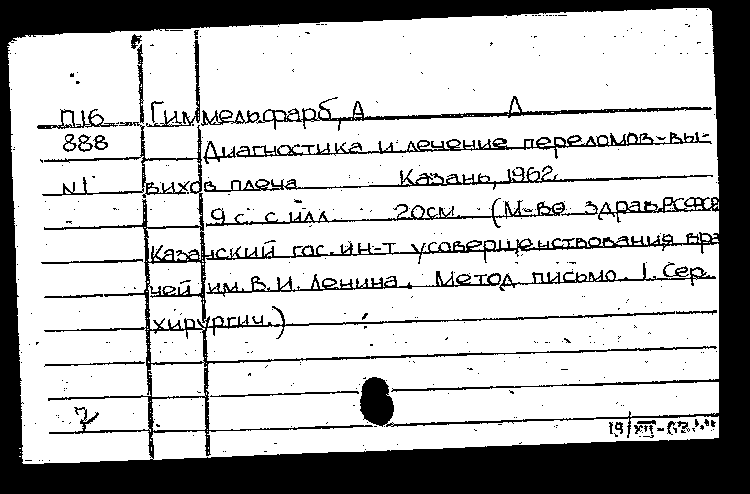 П16 Гиммельфарб, А Л
888 Диагностика и лечение переломов-вы-
N1 вихов плеча Казань, 1962.
9 с. с илл. 20см. (М-во здрав. РСФСР
Казанский гос. ин-т усовершенствования вра
чей им. В. И. Ленина. Метод письмо. 1. Сер.
хирургич.)
19/XII-62